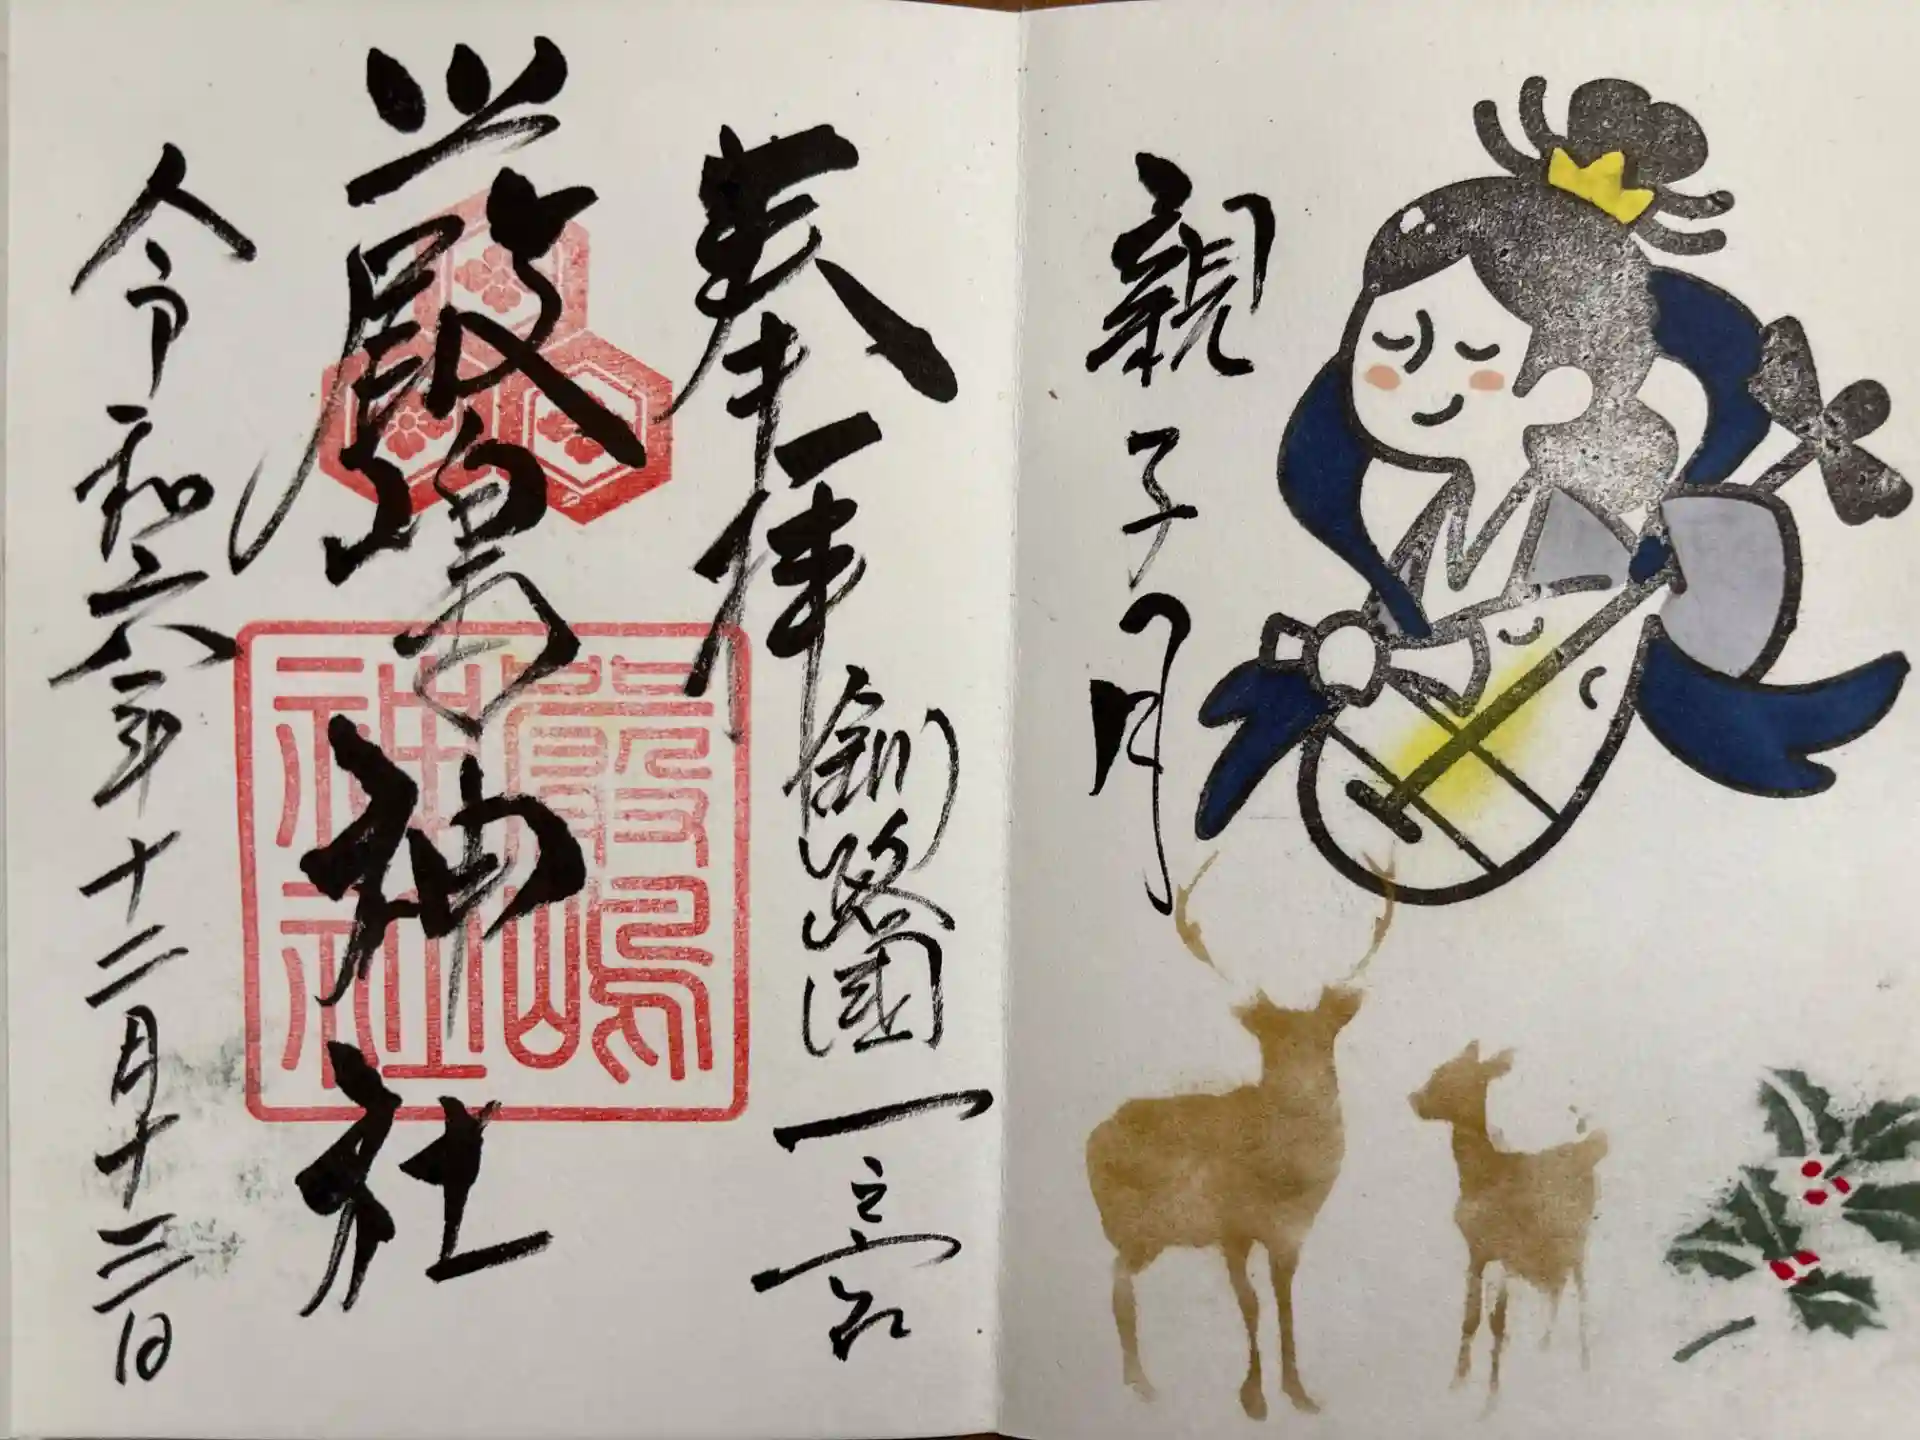 親子月
奉拝
釧路國一之宮
嚴島神社
嚴嶋
神社
令和六年十二月十三日